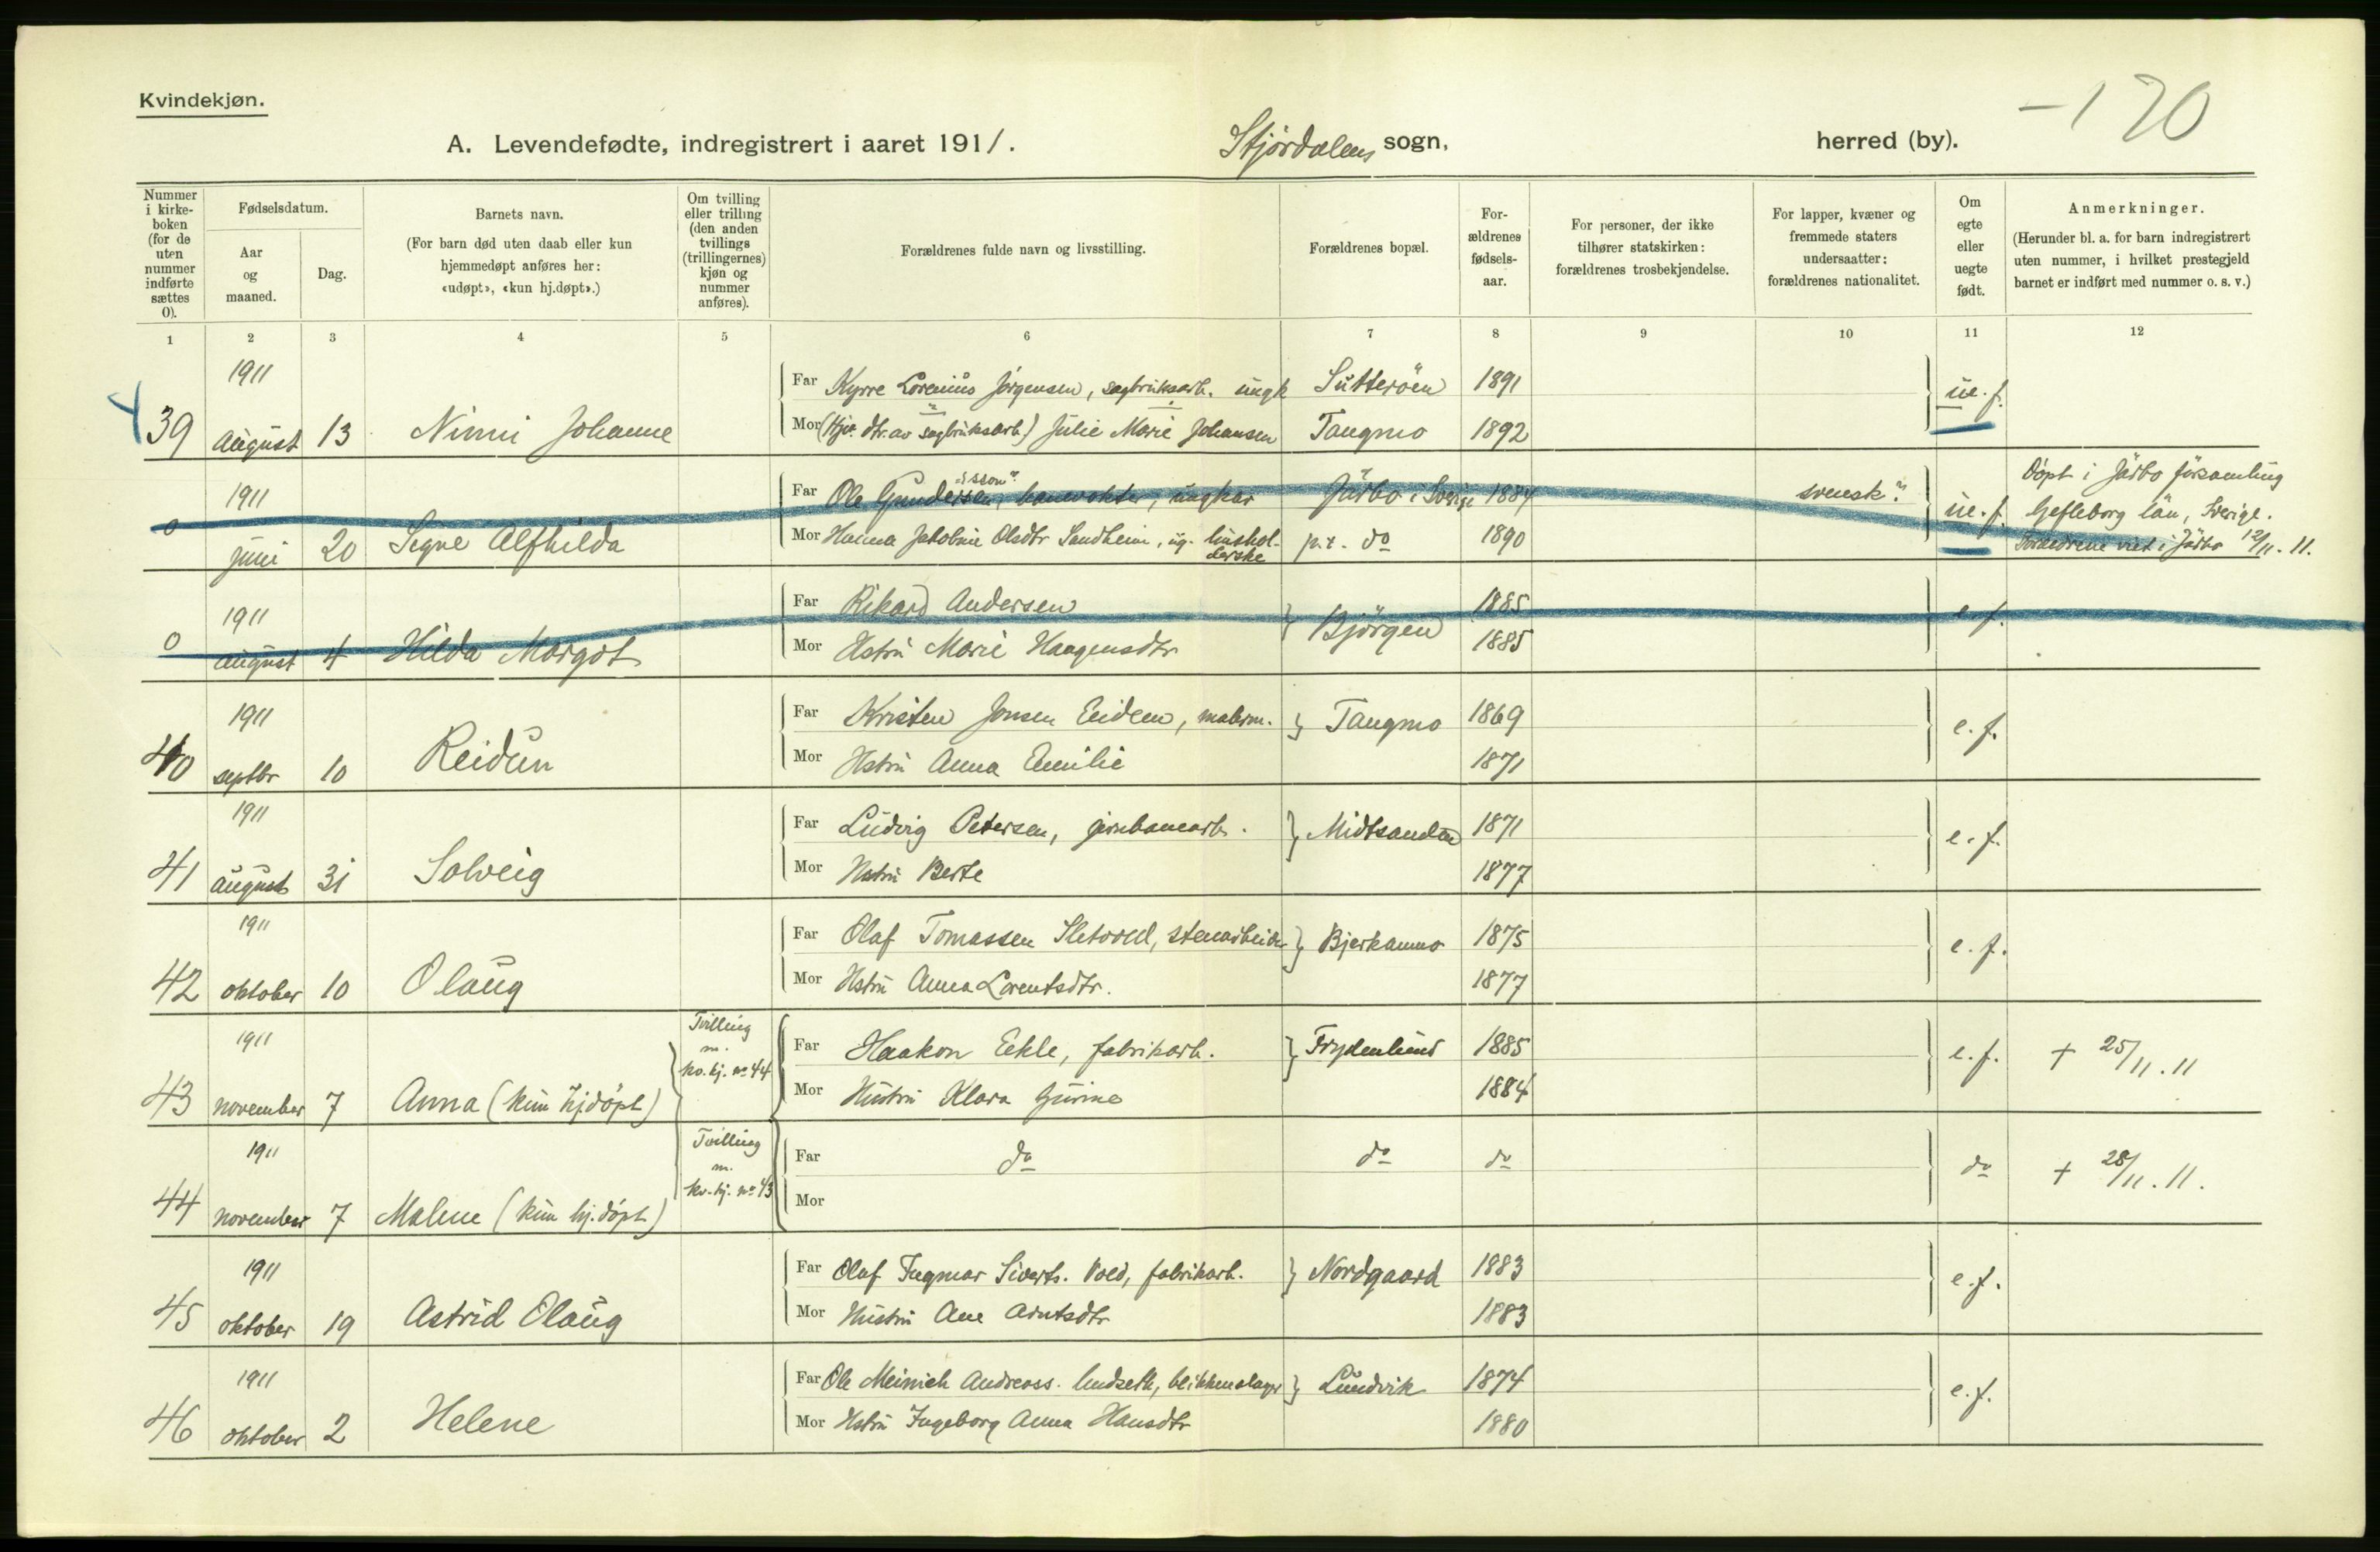 Kvindekjøn.
-170
A. Levendefødte, indregistrert i aaret 1911. Stjørdalens sogn, herred (by).
Nummer i kirke-boken (for de uten nummer indførte sættes 0).
Fødselsdatum.
Aar og maaned.
Dag.
Barnets navn.
(For barn død uten daab eller kun hjemmedøpt anføres her: «udøpt», «kun hj.døpt».)
Om tvilling eller trilling (den anden tvillings (trillingernes) kjøn og nummer anføres).
Forældrenes fulde navn og livsstilling.
Forældrenes bopæl.
For-ældrenes fødsels-aar.
For personer, der ikke tilhører statskirken: forældrenes trosbekjendelse.
For lapper, kvæner og fremmede staters undersaatter: forældrenes nationalitet.
Om egte eller uegte født.
Anmerkninger.
(Herunder bl. a. for barn indregistrert uten nummer, i hvilket prestegjeld barnet er indført med nummer o. s. v.)
1 2 3 4 5 6 7 8 9 10 11 12
1911 Far Kyrre Lorenius Jørgensen, sagbruksarb. ungk Sutterøen 1891 ue. f.
39 august 13 Nimi Johanne Mor (Hjv. dtr. av sagbruksarb.) Julie Marie Johansen Tangmo 1892
1911 Far Ole Gundersen, "-isson" banevokter, ungkar Järbo i Sverige 1884 svensk. ue. f. Döpt i Järbo församling Gefleborg län, Sverige.
0 juni 20 Segne Alfhilda Mor Hanna Jakobine Olsdtr Sandheim, ug. husholderske p.t. do 1890 Forældrene viet i Järbo 12/11. 11.
1911 Far Rikard Andersen Bjørgen 1885 e. f.
0 august 4 Hilda Margot Mor Hstru Marie Haagensdtr 1885
1911 Far Kristen Jonsen Eidem, malerm. Tangmo 1869 e. f.
40 septbr 10 Reidun Mor Hstru Anna Emilie 1871
1911 Far Ludvig Petersen, jernbanearb. Midtsanden 1871 e. f.
41 august 31 Solveig Mor Hstru Berte 1877
1911 Far Olaf Tomassen Sletvold, stenarbeider Bjerkanmo 1875 e. f.
42 oktober 10 Olaug Mor Hstru Anna Lorentsdtr. 1877
1911 Tvilling m. kv. kj. no 44 Far Haakon Eekle, fabrikarb. Frydenlund 1885 e. f. + 25/11. 11
43 november 7 Anna (kun hjdøpt) Mor Hustru Klara Gurine 1884
1911 Tvilling m. kv. kj. no 43 Far do do do do + 28/11. 11.
44 november 7 Malene (kun hj. døpt) Mor
1911 Far Olaf Ingmar Siverts. Vold, fabrikarb. Nordgaard 1883 e. f.
45 oktober 19 Astrid Olaug Mor Hustru Ane Arntsdtr 1883
1911 Far Ole Meinich Andreass. Lundseth, blikkenslager Lundvik 1874 e. f.
46 oktober 2 Helene Mor Hstru Ingeborg Anna Hansdtr 1880